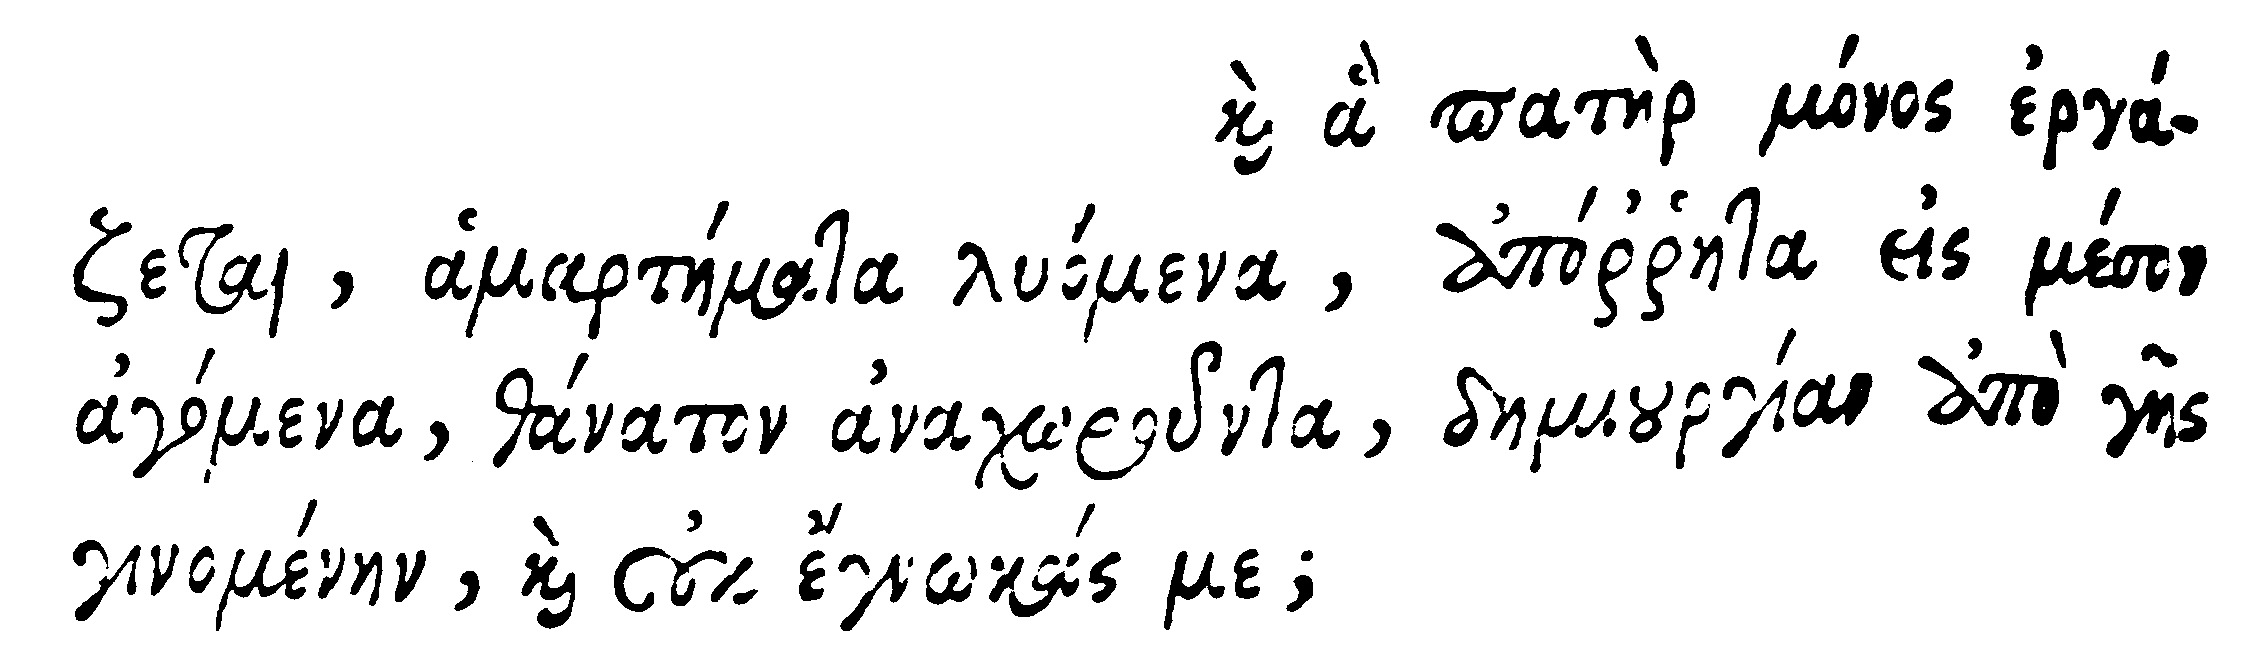 καὶ ἃ πατὴρ μόνος ἐργά-
ζεται, ἁμαρτήματα λυόμενα, ἀπόῤῥητα εἰς μέσον
ἀγόμενα, θάνατον ἀναχωροῦντα, δημιουργίαν ἀπὸ γῆς
γινομένην, καὶ οὐκ ἔγνωκάς με;